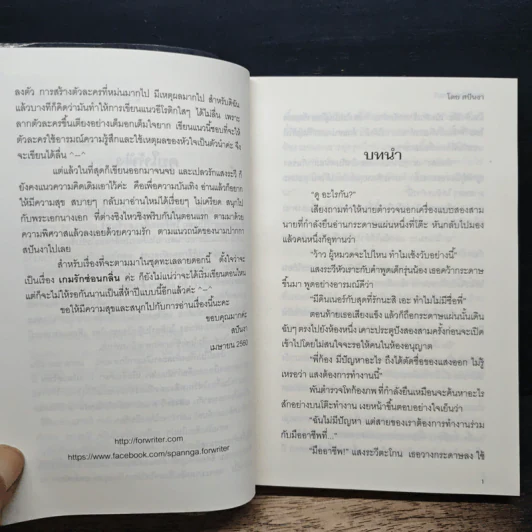 ลงตัว การสร้างตัวละครที่หม่นมากไป มีเหตุผลมากไป สำหรับดิฉัน
แล้วบางทีก็คิดว่ามันทำให้การเขียนแนวอีโรติกใสๆ ได้ไม่ลื่น เพราะ
ลากตัวละครขึ้นเตียงอย่างเต็มอกเต็มใจยาก เขียนแนวนี้ชอบที่จะให้
ตัวละครใช้อารมณ์ความรู้สึกและใช้เหตุผลของหัวใจเป็นตัวนำค่ะ จึง
จะเขียนได้ลื่น ^--^
แต่แล้วในที่สุดก็เขียนออกมาจนจบ และเปลวรักแสงระวี ก็
ยังคงแนวความคิดเดิมเอาไว้ค่ะ คือเพื่อความบันเทิง อ่านแล้วก็อยาก
ให้มีความสุข สบายๆ กลับมาอ่านใหม่ได้เรื่อยๆ ไม่เครียด สนุกไป
กับพระเอกนางเอก ที่ต่างชิงไหวชิงพริบกันในตอนแรก ตามมาด้วย
ความพิศวาสแล้วลงเอยด้วยความรัก ตามแนวถนัดของนามปากกา
สปันงาไปเลย
สำหรับเรื่องที่จะตามมาในชุดทะเลลายดอกนี้ ตั้งใจว่าจะ
เป็นเรื่อง เกมรักซ่อนกลิ่น ค่ะ ก็ยังไม่แน่ว่าจะได้เริ่มเขียนตอนไหน
แต่ก็จะไม่ให้รอกันนานเป็นสี่ห้าปีแบบนี้อีกแล้วค่ะ ^--^
ขอให้มีความสุขและสนุกไปกับการอ่านเรื่องนี้นะคะ
ขอบคุณมากค่ะ
สปันงา
เมษายน 2560
http://forwriter.com
https://www.facebook.com/spannga.forwriter
โดย สปันงา
บทนำ
"ดู อะไรกัน?"
เสียงถามทำให้นายตำรวจนอกเครื่องแบบสองสาม
นายที่กำลังยืนอ่านกระดาษแผ่นหนึ่งที่โต๊ะ หันกลับไปมอง
แล้วคนหนึ่งก็อุทานว่า
"ว้าว ผู้หมวดจะไปไหน ทำไมเซิงวับอย่างนี้"
แสงระวีหัวเราะกับคำพูดเด็กรุ่นน้อง เธอคว้ากระดาษ
ขึ้นมา พูดอย่างอารมณ์ดีว่า
"มีดินเนอร์กับสุดที่รักนะสิ เอะ ทำไมไม่มีชื่อพี่"
ตอนท้ายเธอเสียงแข็ง แล้วก็ถือกระดาษแผ่นนั้นเดิน
ฉับๆ ตรงไปยังห้องหนึ่ง เคาะประตูปังสองสามครั้งก่อนจะเปิด
เข้าไปโดยไม่สนใจจะรอให้คนในห้องอนุญาต
"พี่ก้อง มีปัญหาอะไร ถึงได้ตัดชื่อของแสงออก ไม่รู้
เหรอว่า แสงต้องการทำงานนี้"
พันตำรวจโทก้องภพ ที่กำลังยืนเหมือนจะค้นหาอะไร
สักอย่างบนโต๊ะทำงาน เงยหน้าขึ้นตอบอย่างใจเย็นว่า
"ฉันไม่มีปัญหา แต่สายของเราต้องการทำงานร่วม
กับมืออาชีพที่..."
"มืออาชีพ!" แสงระวีตะโกน เธอวางกระดาษลง ใช้
1